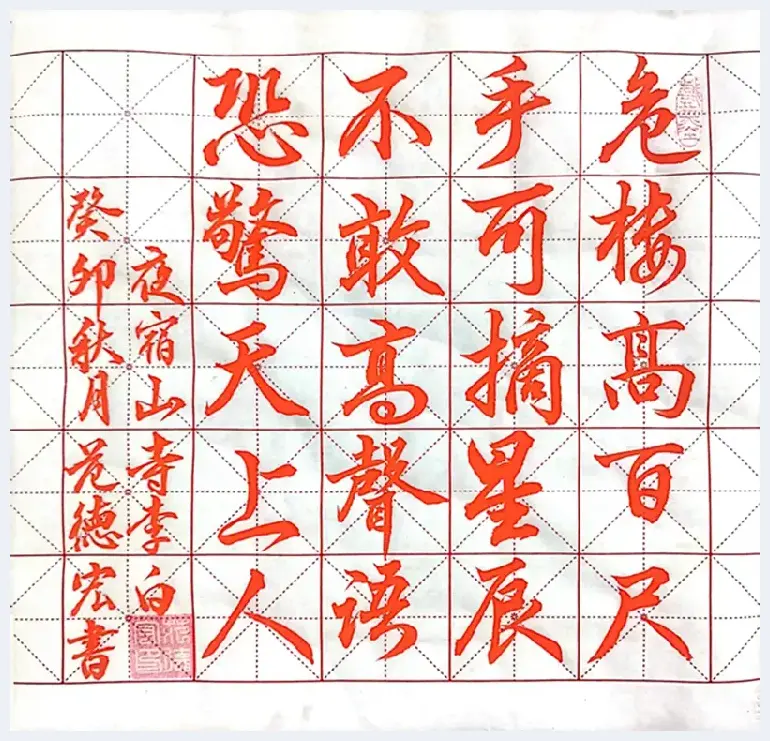 危楼高百尺
手可摘星辰
不敢高聲语
恐驚天上人
夜宿山寺李白
癸卯秋月范德宏書